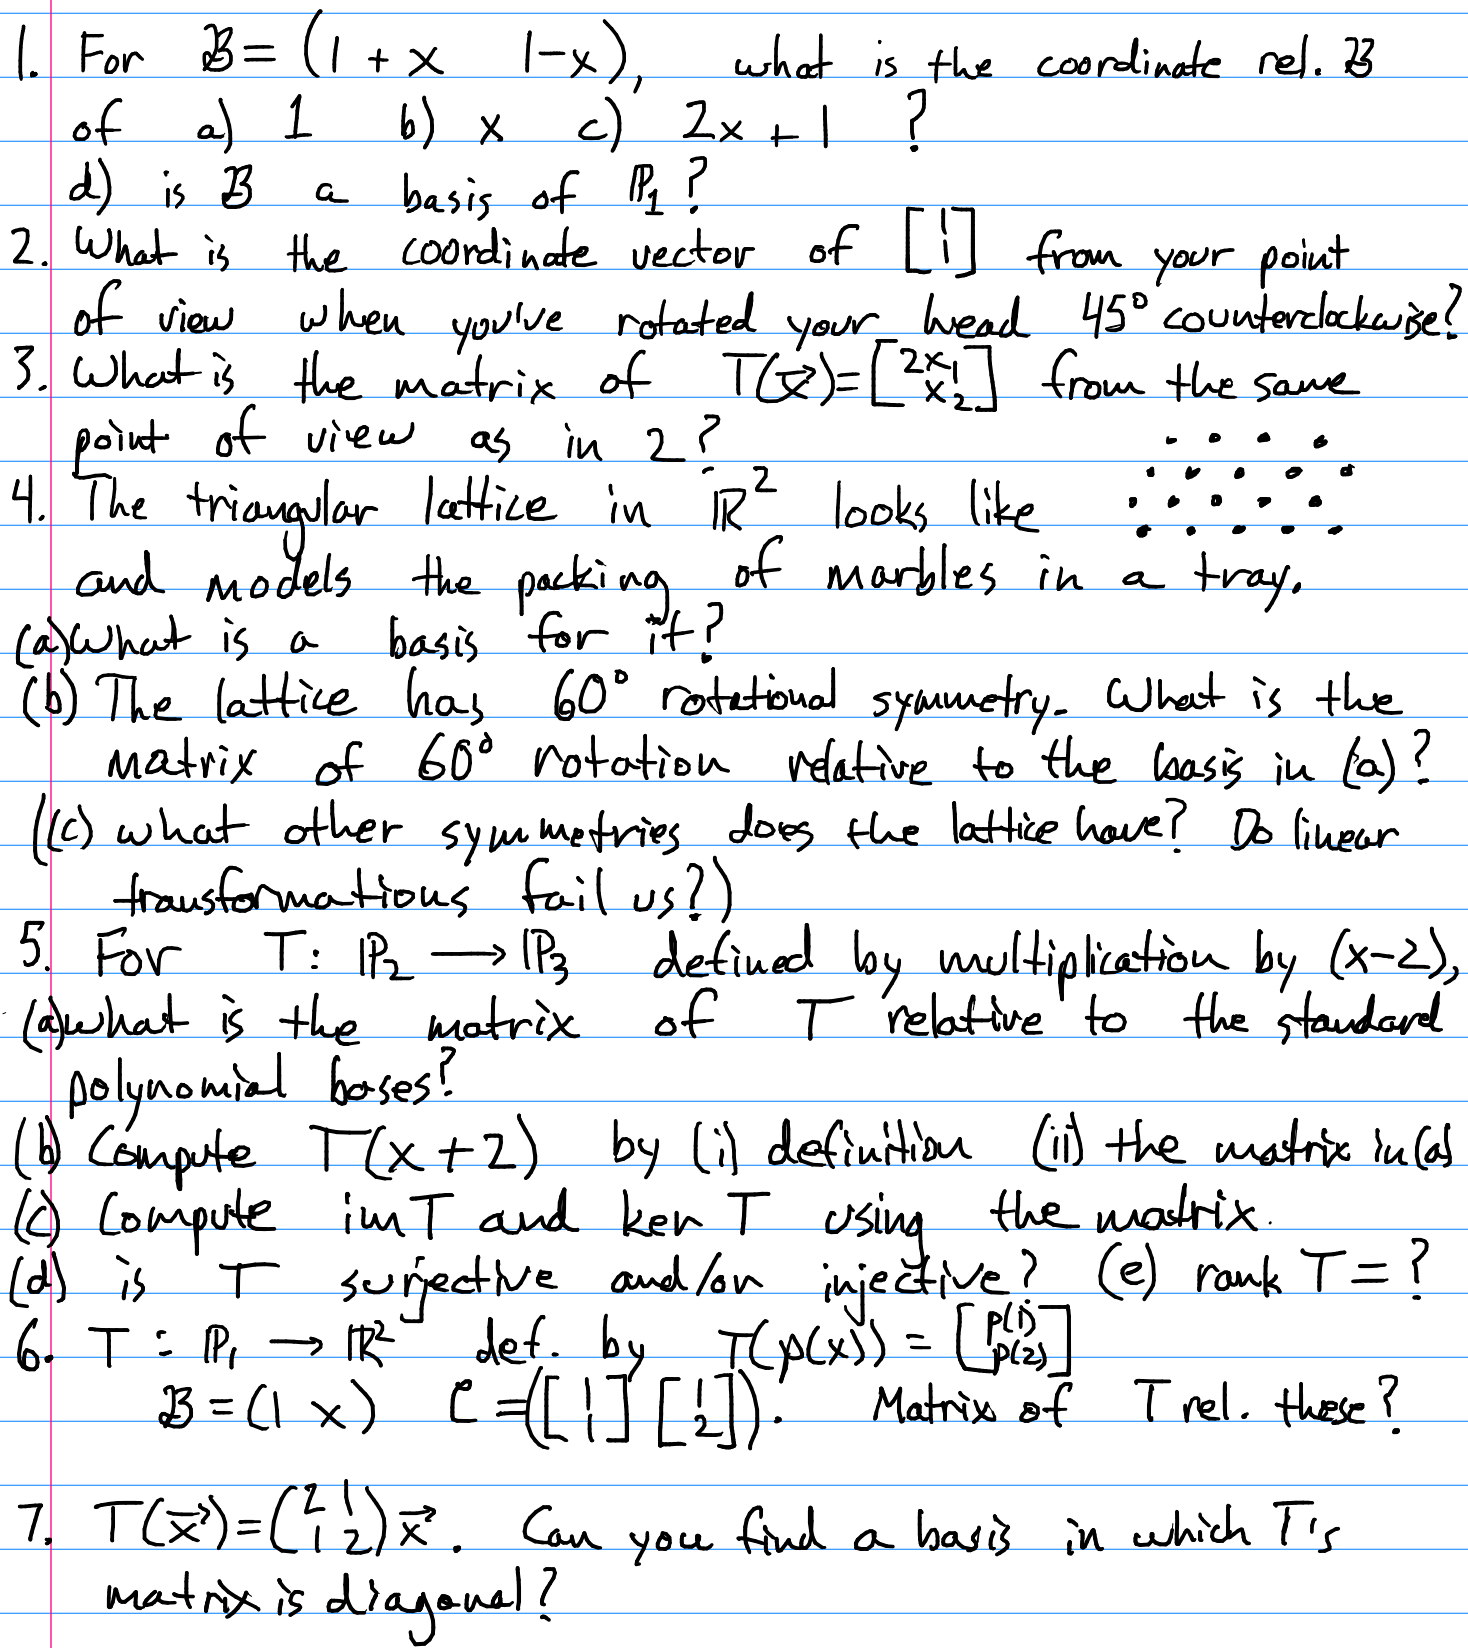 1. For ℬ = (1 + x   1-x), what is the coordinate rel. ℬ
of a) 1 b) x c) 2x + 1 ?
d) is ℬ a basis of ℙ₁ ?
2. What is the coordinate vector of [1 1] from your point
of view when you've rotated your head 45° counterclockwise?
3. What is the matrix of T(x⃗) = [2x₁ x₂] from the same
point of view as in 2 ?
4. The triangular lattice in ℝ² looks like
and models the packing of marbles in a tray.
(a) What is a basis for it?
(b) The lattice has 60° rotational symmetry. What is the
matrix of 60° rotation relative to the basis in (a) ?
((c) what other symmetries does the lattice have? Do linear
transformations fail us?)
5. For T: ℙ₂ ⟶ ℙ₃ defined by multiplication by (x-2),
(a) what is the matrix of T relative to the standard
polynomial bases?
(b) Compute T(x+2) by (i) definition (ii) the matrix in (a)
(c) Compute im T and ker T using the matrix.
(d) is T surjective and/or injective? (e) rank T = ?
6. T : ℙ₁ → ℝ² def. by T(p(x)) = [p(1) p(2)]
ℬ = (1 x) 𝒞 = ([1 1] [1 2]). Matrix of T rel. these?
7. T(x⃗) = (2 1 1 2) x⃗. Can you find a basis in which T's
matrix is diagonal?